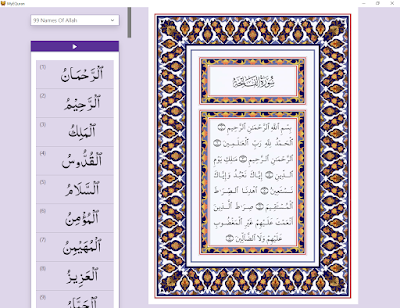 MyQuran
99 Names Of Allah
(1) ٱلرَّحْمَـٰنُ
(2) ٱلرَّحِيْمُ
(3) ٱلْمَلِكُ
(4) ٱلْقُدُّوسُ
(5) ٱلسَّلَامُ
(6) ٱلْمُؤْمِنُ
(7) ٱلْمُهَيْمِنُ
(8) ٱلْعَزِيزُ
(9)
سُورَةُ الْفَاتِحَةِ
بِسْمِ ٱللَّهِ ٱلرَّحْمَـٰنِ ٱلرَّحِيمِ ۝
ٱلْحَمْدُ لِلَّهِ رَبِّ ٱلْعَـٰلَمِينَ ۝
ٱلرَّحْمَـٰنِ ٱلرَّحِيمِ ۝ مَـٰلِكِ يَوْمِ
ٱلدِّينِ ۝ إِيَّاكَ نَعْبُدُ وَإِيَّاكَ
نَسْتَعِينُ ۝ ٱهْدِنَا ٱلصِّرَٰطَ
ٱلْمُسْتَقِيمَ ۝ صِرَٰطَ ٱلَّذِينَ
أَنْعَمْتَ عَلَيْهِمْ غَيْرِ ٱلْمَغْضُوبِ
عَلَيْهِمْ وَلَا ٱلضَّآلِّينَ ۝